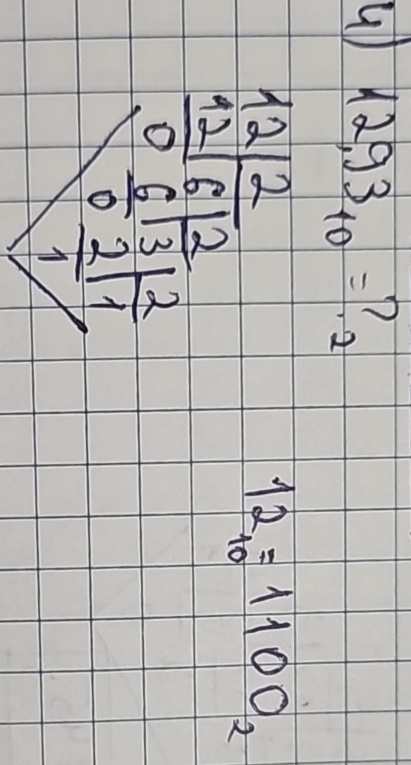 4) 12,93₁₀ = ?₂
12 | 2
12 | 6 | 2
0 6 | 3 | 2
0 2 | 1
1
12₁₀ = 1100₂